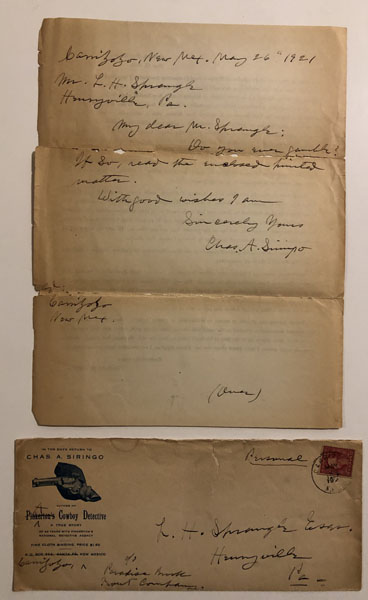 Carrizozo, New Mex. May 26th 1921
Mr. L. H. Sprangle
Henryville, Pa.
My dear Mr. Sprangle:
Do you ever gamble?
If so, read the enclosed printed
matter.
With good wishes I am
Sincerely Yours
Chas. A. Siringo
Carrizozo
New Mex.
(Over)
IN TEN DAYS RETURN TO
CHAS. A. SIRINGO
AUTHOR OF
Pinkerton's Cowboy Detective
A TRUE STORY
NATIONAL DETECTIVE AGENCY
Carrizozo
Personal
L. H. Sprangle Esqr.
Henryville
Pa.
c/o
Paradise Brook
Trout Company